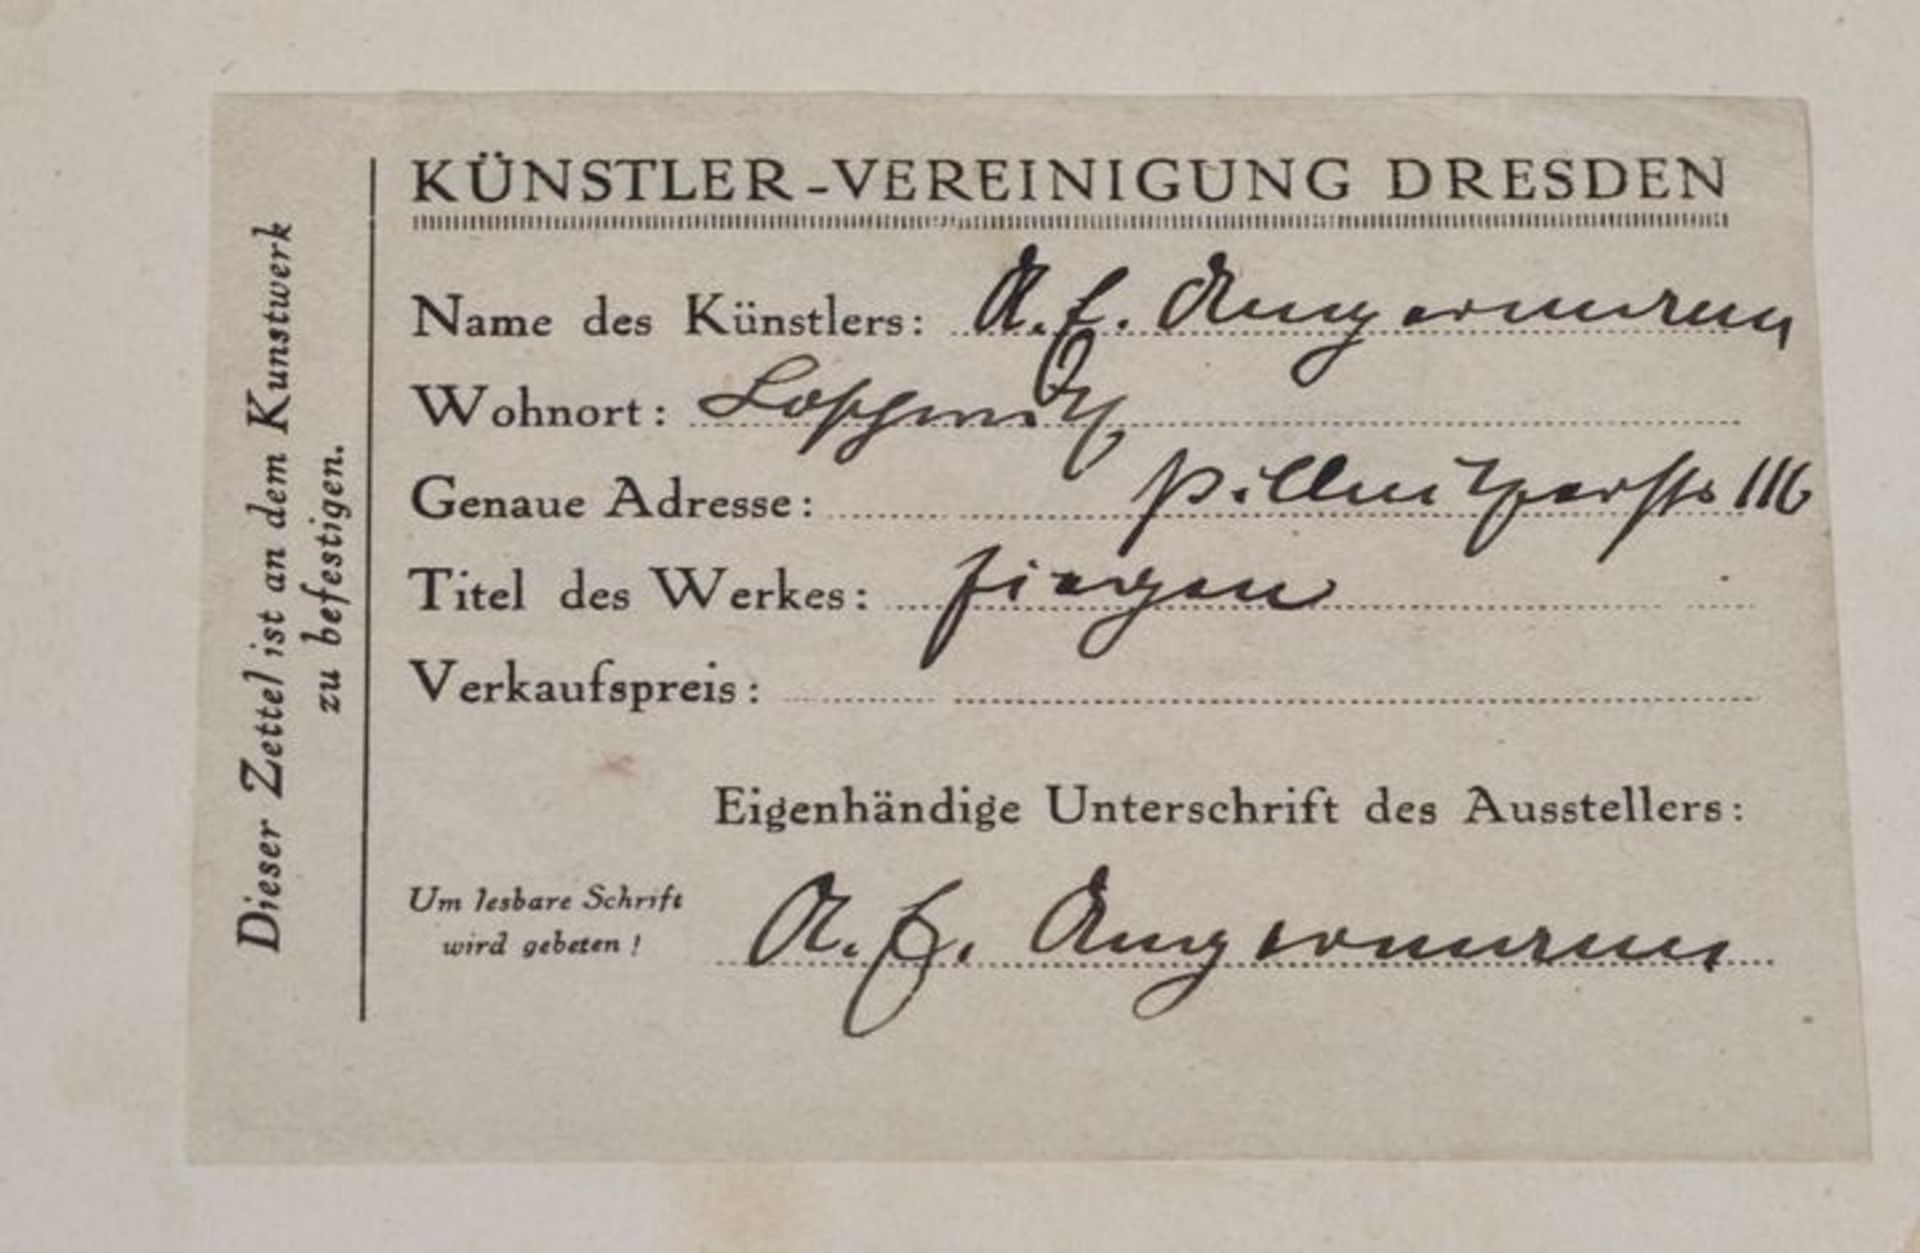 KÜNSTLER-VEREINIGUNG DRESDEN
Name des Künstlers: A. E. Angermann
Wohnort: Loschwitz
Genaue Adresse: Pillnitzerstr. 116
Titel des Werkes:
Verkaufspreis:
Eigenhändige Unterschrift des Ausstellers:
Um lesbare Schrift
wird gebeten!
A. E. Angermann
Dieser Zettel ist an dem Kunstwerk
zu befestigen.